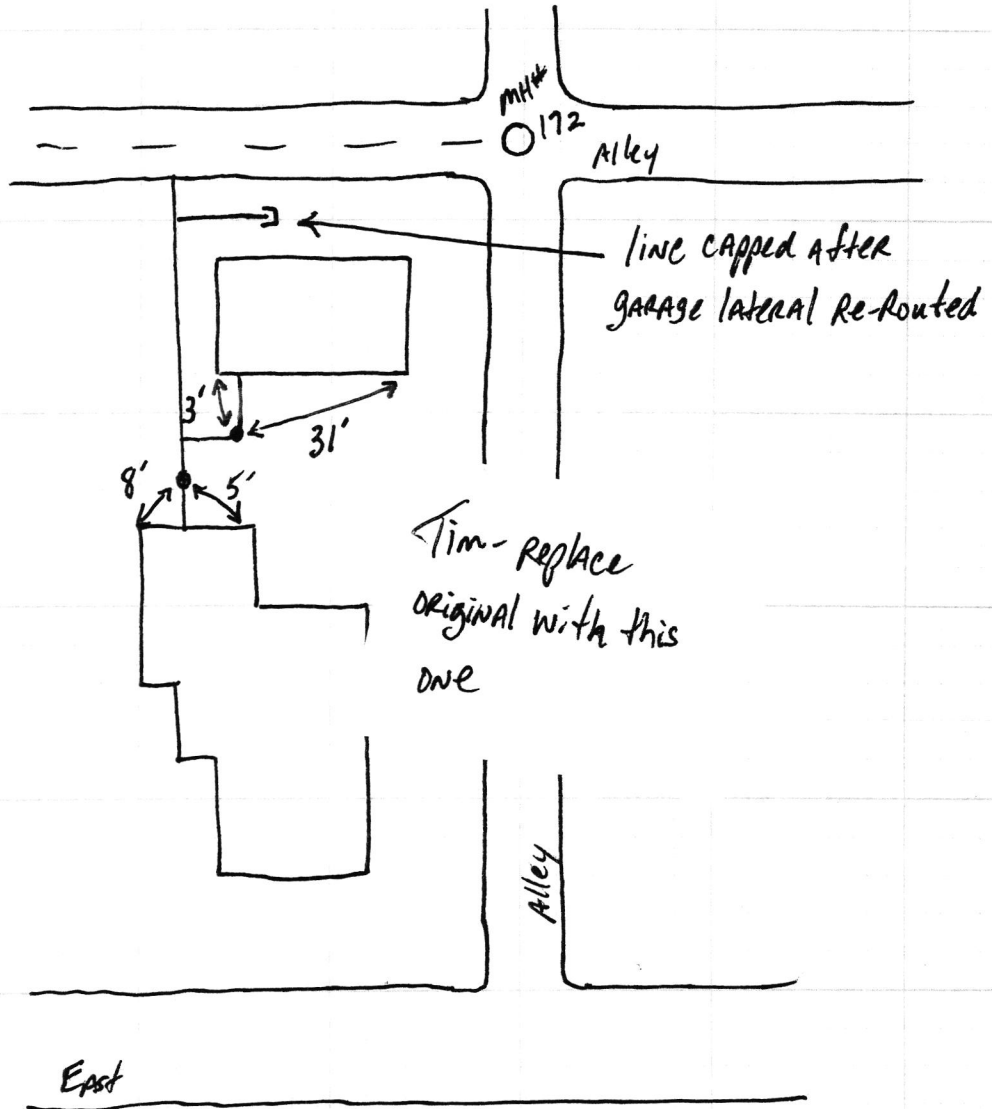 MH#
172
Alley
line capped after
garage lateral Re-Routed
3'
31'
8'
5'
Tim- Replace
original with this
one
Alley
East